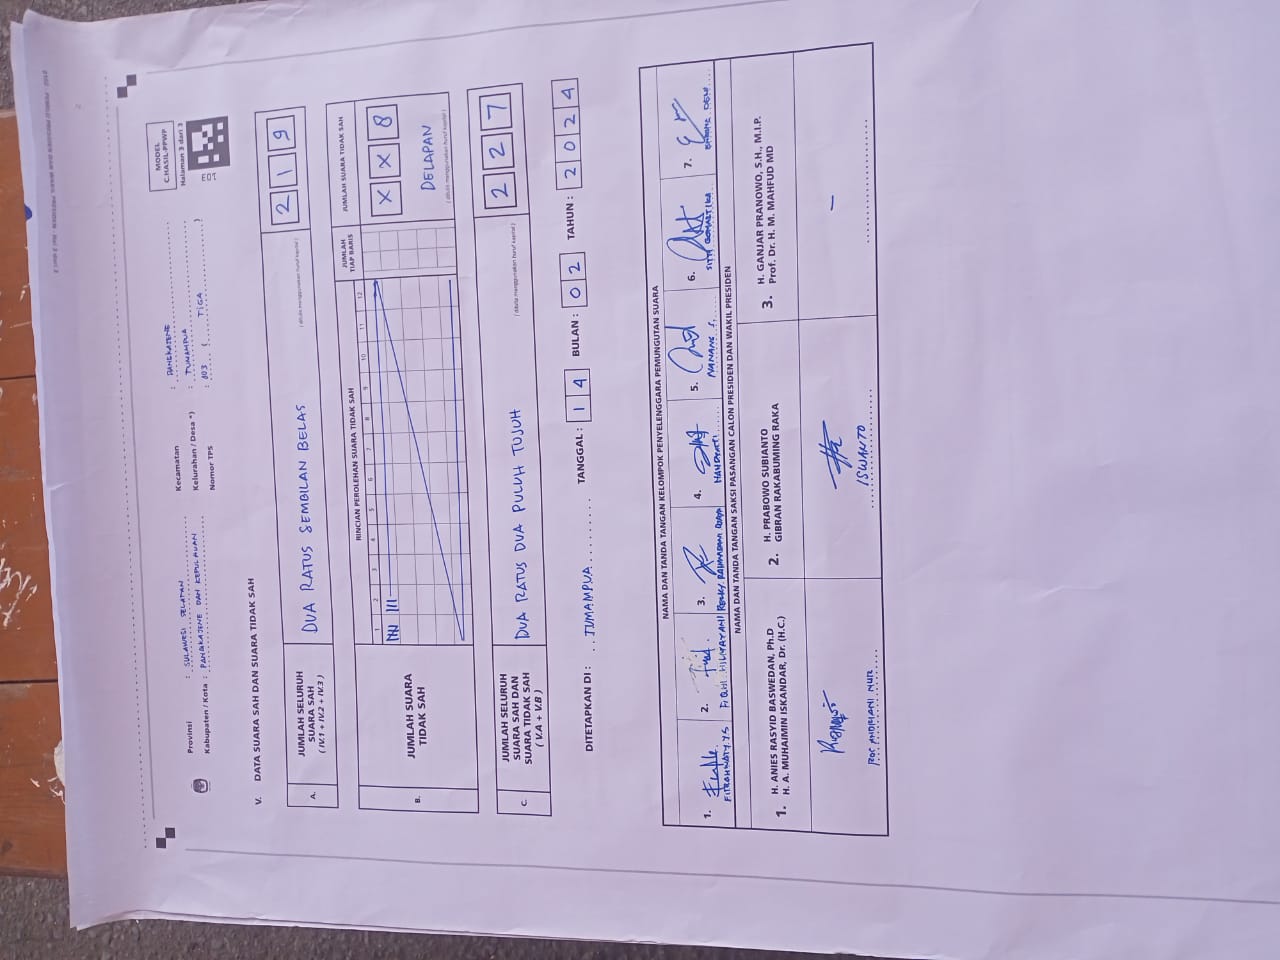 MODEL
C.HASIL-PPWP
Halaman 3 dari 3
Provinsi : SULAWESI SELATAN
Kecamatan : PANGKAJENE
Kabupaten / Kota : PANGKAJENE DAN KEPULAUAN
Kelurahan / Desa *) : TUMAMPUA
Nomor TPS : 003 ( TIGA )
V. DATA SUARA SAH DAN SUARA TIDAK SAH
A. JUMLAH SELURUH SUARA SAH (IV.1 + IV.2 + IV.3)
DUA RATUS SEMBILAN BELAS
( ditulis menggunakan huruf kapital )
2 1 9
B. JUMLAH SUARA TIDAK SAH
RINCIAN PEROLEHAN SUARA TIDAK SAH
1 2 3 4 5 6 7 8 9 10 11 12
JUMLAH TIAP BARIS
JUMLAH SUARA TIDAK SAH
X X 8
DELAPAN
( ditulis menggunakan huruf kapital )
C. JUMLAH SELURUH SUARA SAH DAN SUARA TIDAK SAH ( V.A + V.B )
DUA RATUS DUA PULUH TUJUH
( ditulis menggunakan huruf kapital )
2 2 7
DITETAPKAN DI : TUMAMPUA TANGGAL : 1 4 BULAN : 0 2 TAHUN : 2 0 2 4
NAMA DAN TANDA TANGAN KELOMPOK PENYELENGGARA PEMUNGUTAN SUARA
1. 2. 3. 4. 5. 6. 7.
NANANG S.
NAMA DAN TANDA TANGAN SAKSI PASANGAN CALON PRESIDEN DAN WAKIL PRESIDEN
1. H. ANIES RASYID BASWEDAN, Ph.D
H. A. MUHAIMIN ISKANDAR, Dr. (H.C.)
2. H. PRABOWO SUBIANTO
GIBRAN RAKABUMING RAKA
3. H. GANJAR PRANOWO, S.H., M.I.P.
Prof. Dr. H. M. MAHFUD MD
ISWANTO
–